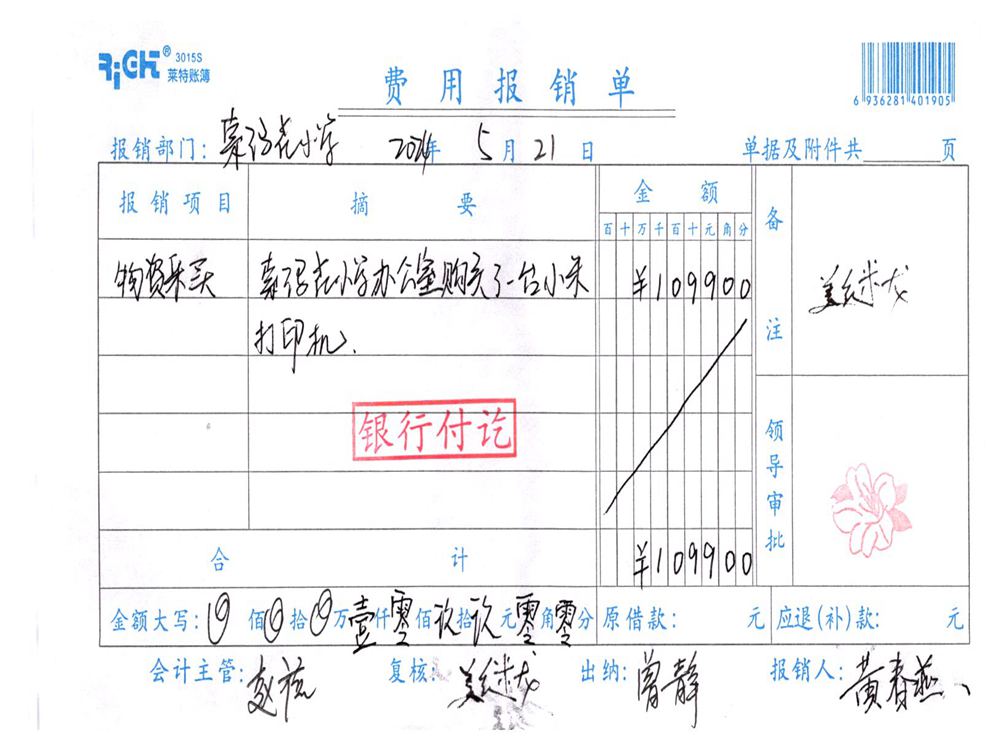 RiGHT® 3015S
莱特账簿
费用报销单
6 936281 401905
报销部门: 小学 2024年 5月 21日 单据及附件共 页
报销项目 摘要 金额 备注
百十万千百十元角分
物资采买 小学办公室购买了一台小米 ¥109900
打印机、
银行付讫
领导审批
合计 ¥109900
金额大写: 佰 拾 万壹仟零佰玖拾玖元零角零分 原借款: 元 应退(补)款: 元
会计主管: 赵 复核: 姜继龙 出纳: 曾静 报销人: 黄春燕